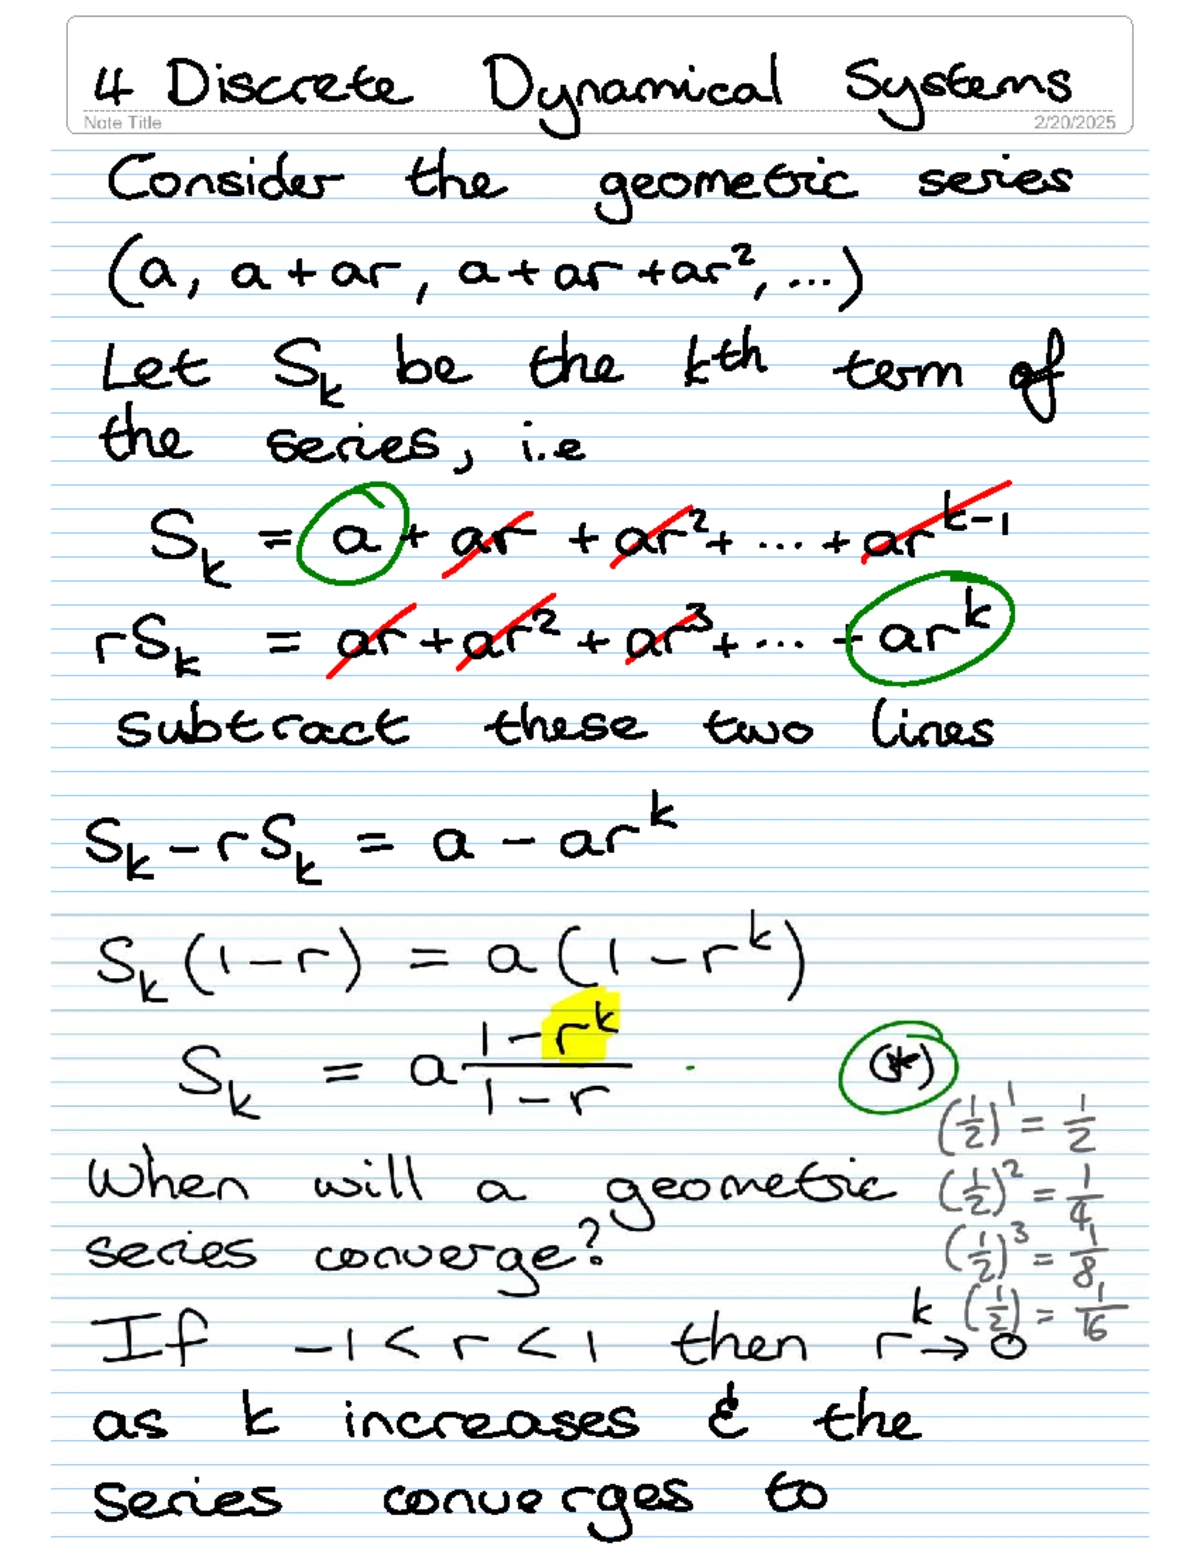 4 Discrete Dynamical Systems
Note Title 2/20/2025
Consider the geometric series
(a, a + ar, a + ar + ar², ...)
Let S_k be the kth term of
the series, i.e
S_k = a + ar + ar² + ... + ar^(k-1)
rS_k = ar + ar² + ar³ + ... + ar^k
subtract these two lines
S_k - rS_k = a - ar^k
S_k (1-r) = a (1-r^k)
S_k = a (1-r^k)/(1-r) (*)
(1/2)¹ = 1/2
When will a geometric (1/2)² = 1/4
series converge? (1/2)³ = 1/8
(1/2) = 1/16
If -1 < r < 1 then r^k → 0
as k increases & the
series converges to